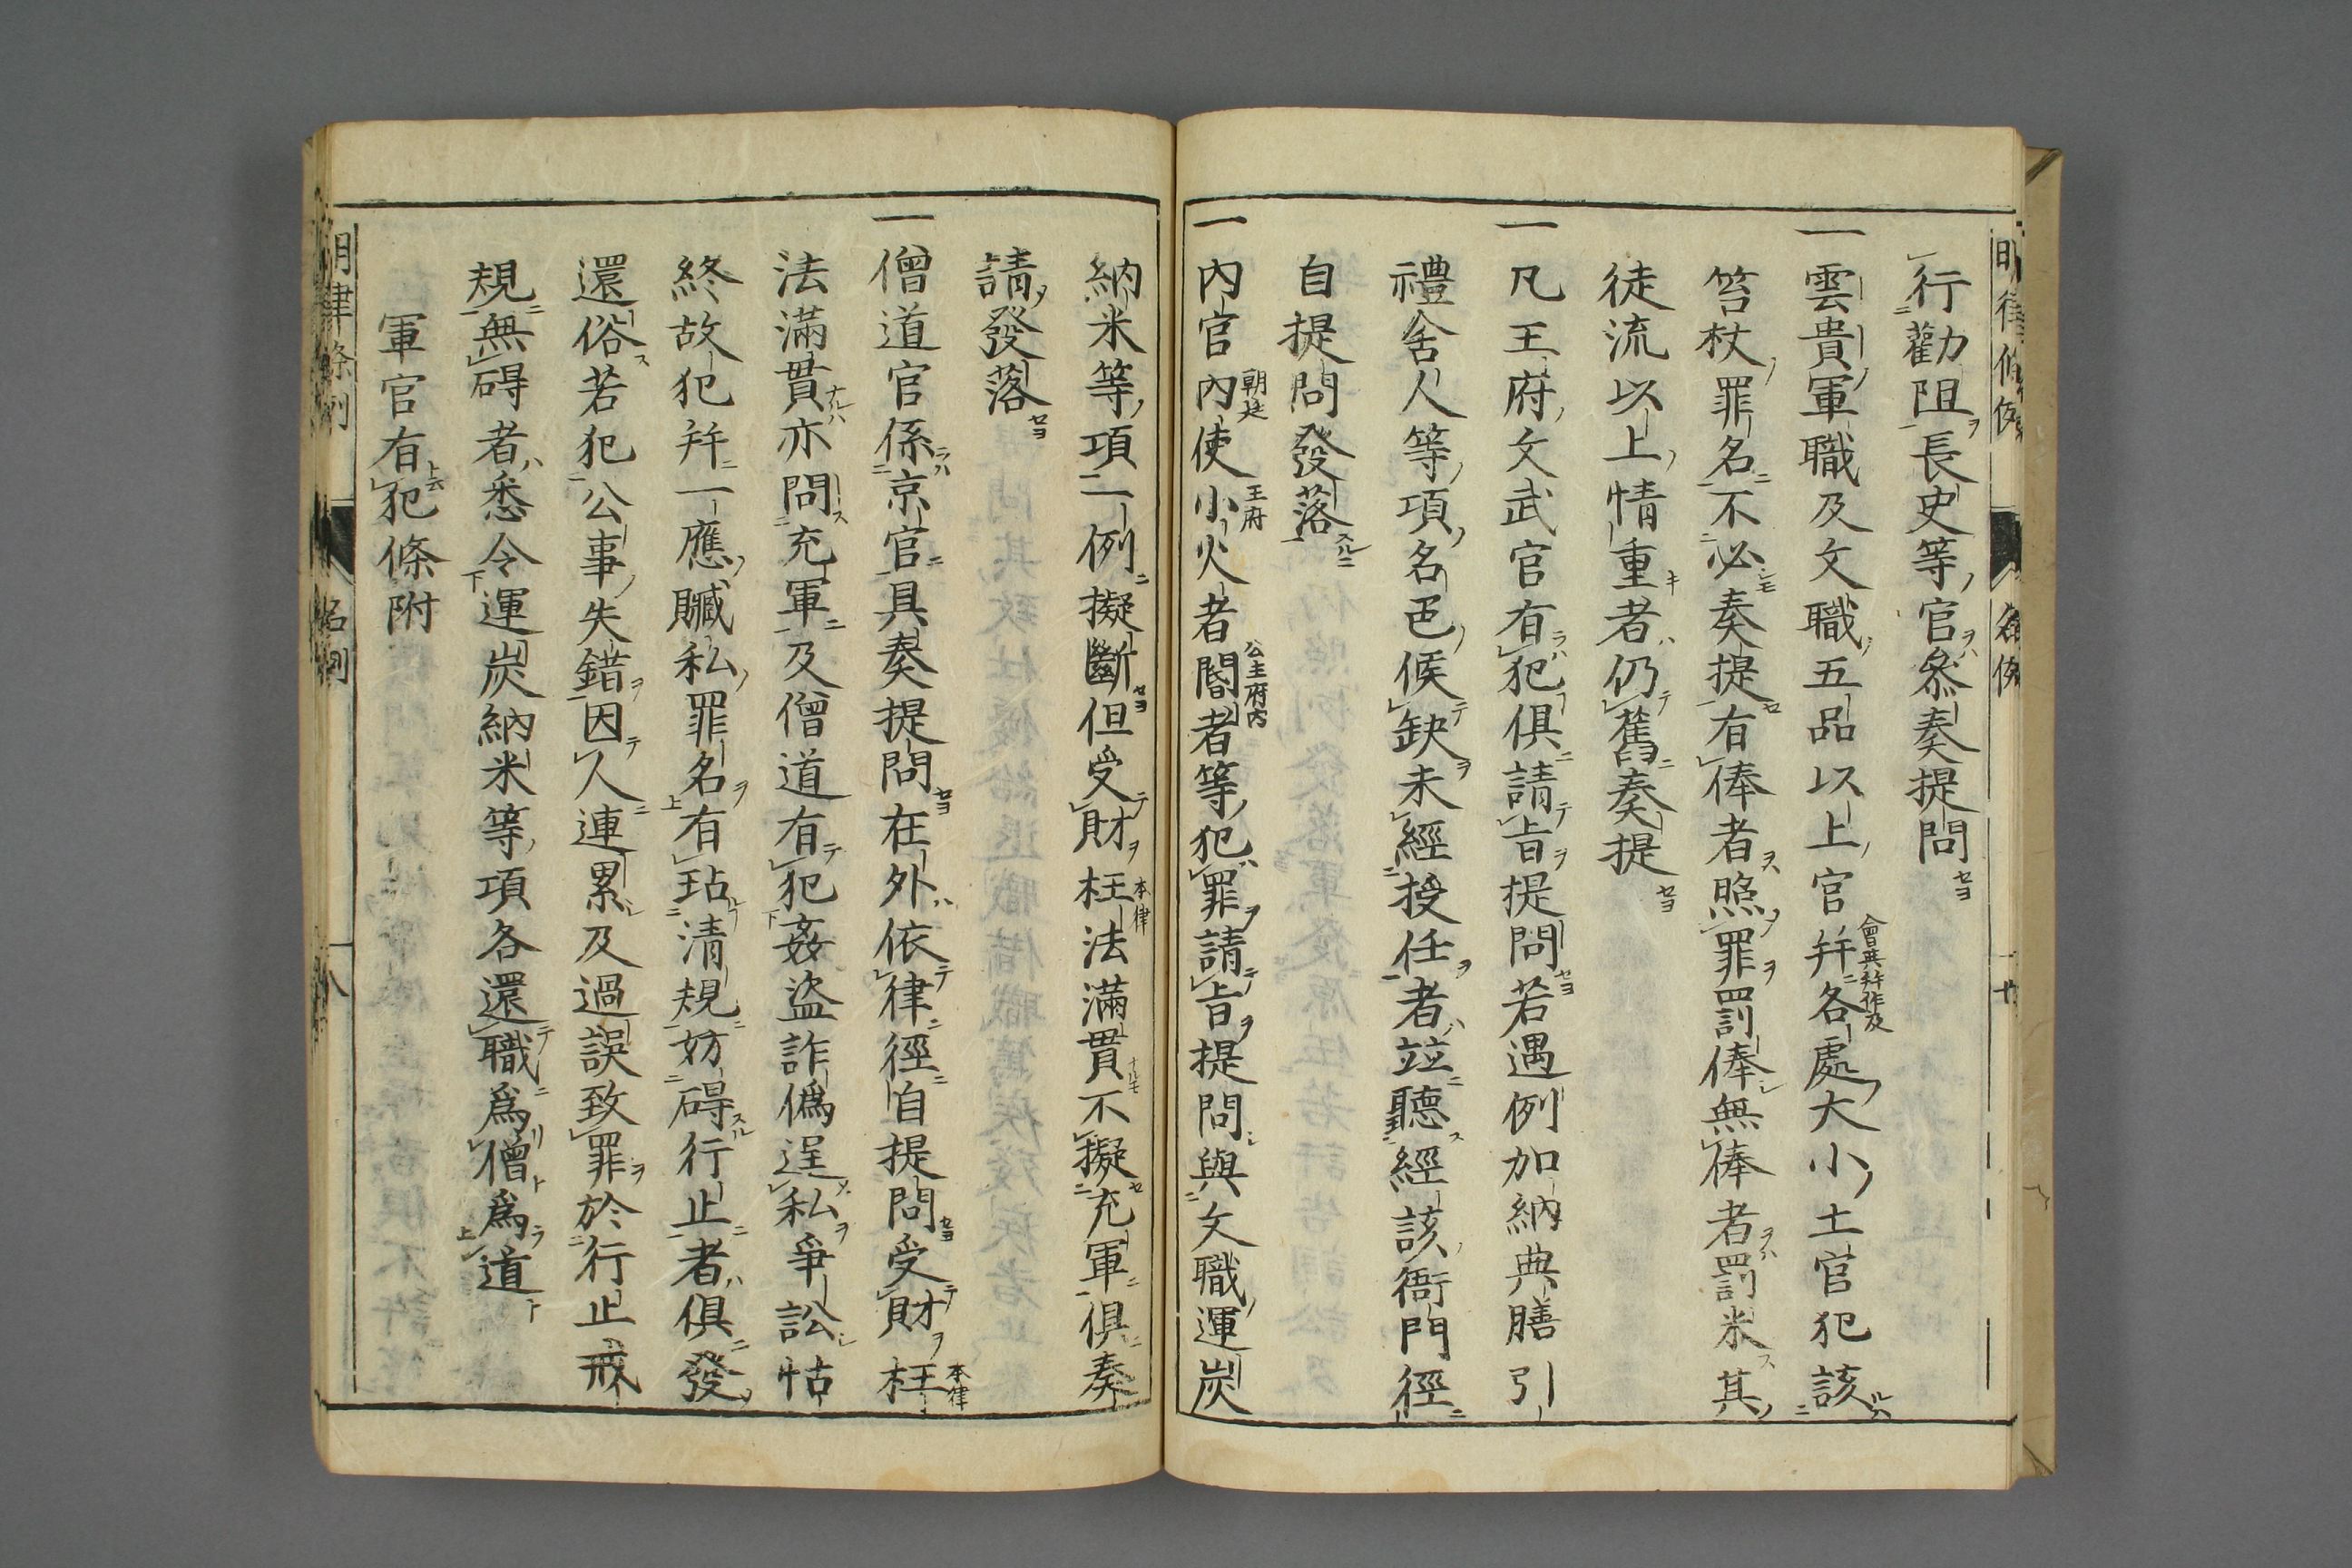 行勸阻長史等官叅奏提問
一雲貴軍職及文職五品以上官幷各處大小土官犯該
笞杖罪名不必奏提有俸者照罪罰俸無俸者罰米其
徒流以上情重者仍舊奏提
一凡王府文武官有犯俱請旨提問若遇例加納典膳引
禮舍人等項名色候缺未經授任者竝聽經該衙門徑
自提問發落
一內官內使小火者閽者等犯罪請旨提問與文職運炭
納米等項一例擬斷但受財枉法滿貫不擬充軍俱奏
請發落
一僧道官係京官具奏提問在外依律徑自提問受財枉
法滿貫亦問充軍及僧道有犯姦盜詐僞逞私爭訟怙
終故犯幷一應贓私罪名有玷清規妨碍行止者俱發
還俗若犯公事失錯因人連累及過誤致罪於行止戒
規無碍者悉令運炭納米等項各還職爲僧爲道
軍官有犯條附